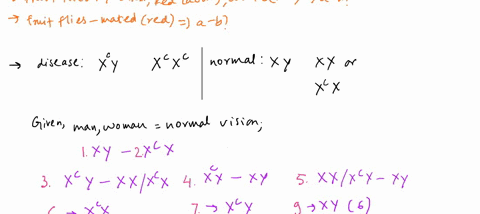 → fruit flies - mated (red) => a-b?
→ disease: XᶜY XᶜXᶜ | normal: XY XX or
XᶜX
Given, man, woman = normal vision;
1. XY - 2XᶜX
3. XᶜY - XX/XᶜX 4. XᶜX - XY 5. XX/XᶜX - XY
7. → XᶜX 9 → XY (6)